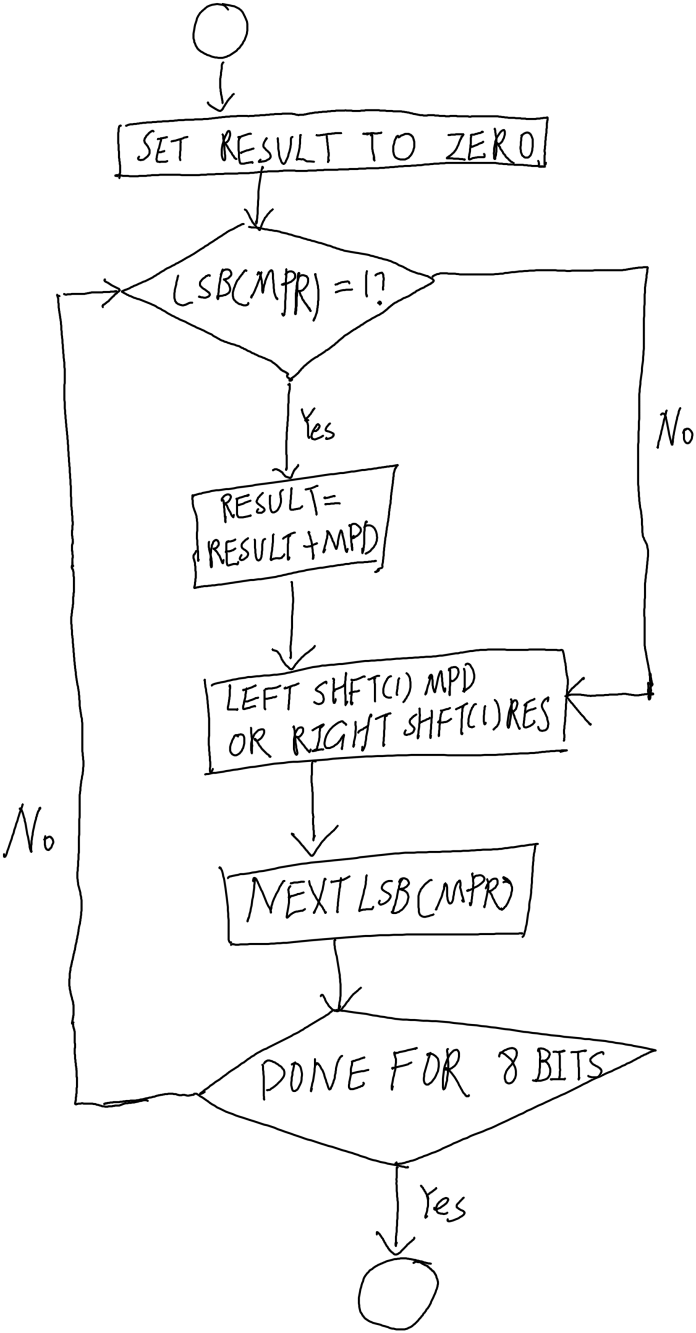 SET RESULT TO ZERO
LSB(MPR) = 1?
No
Yes
RESULT=
RESULT+MPD
LEFT SHFT(1) MPD
OR RIGHT SHFT(1) RES
No
NEXT LSB(MPR)
DONE FOR 8 BITS
Yes